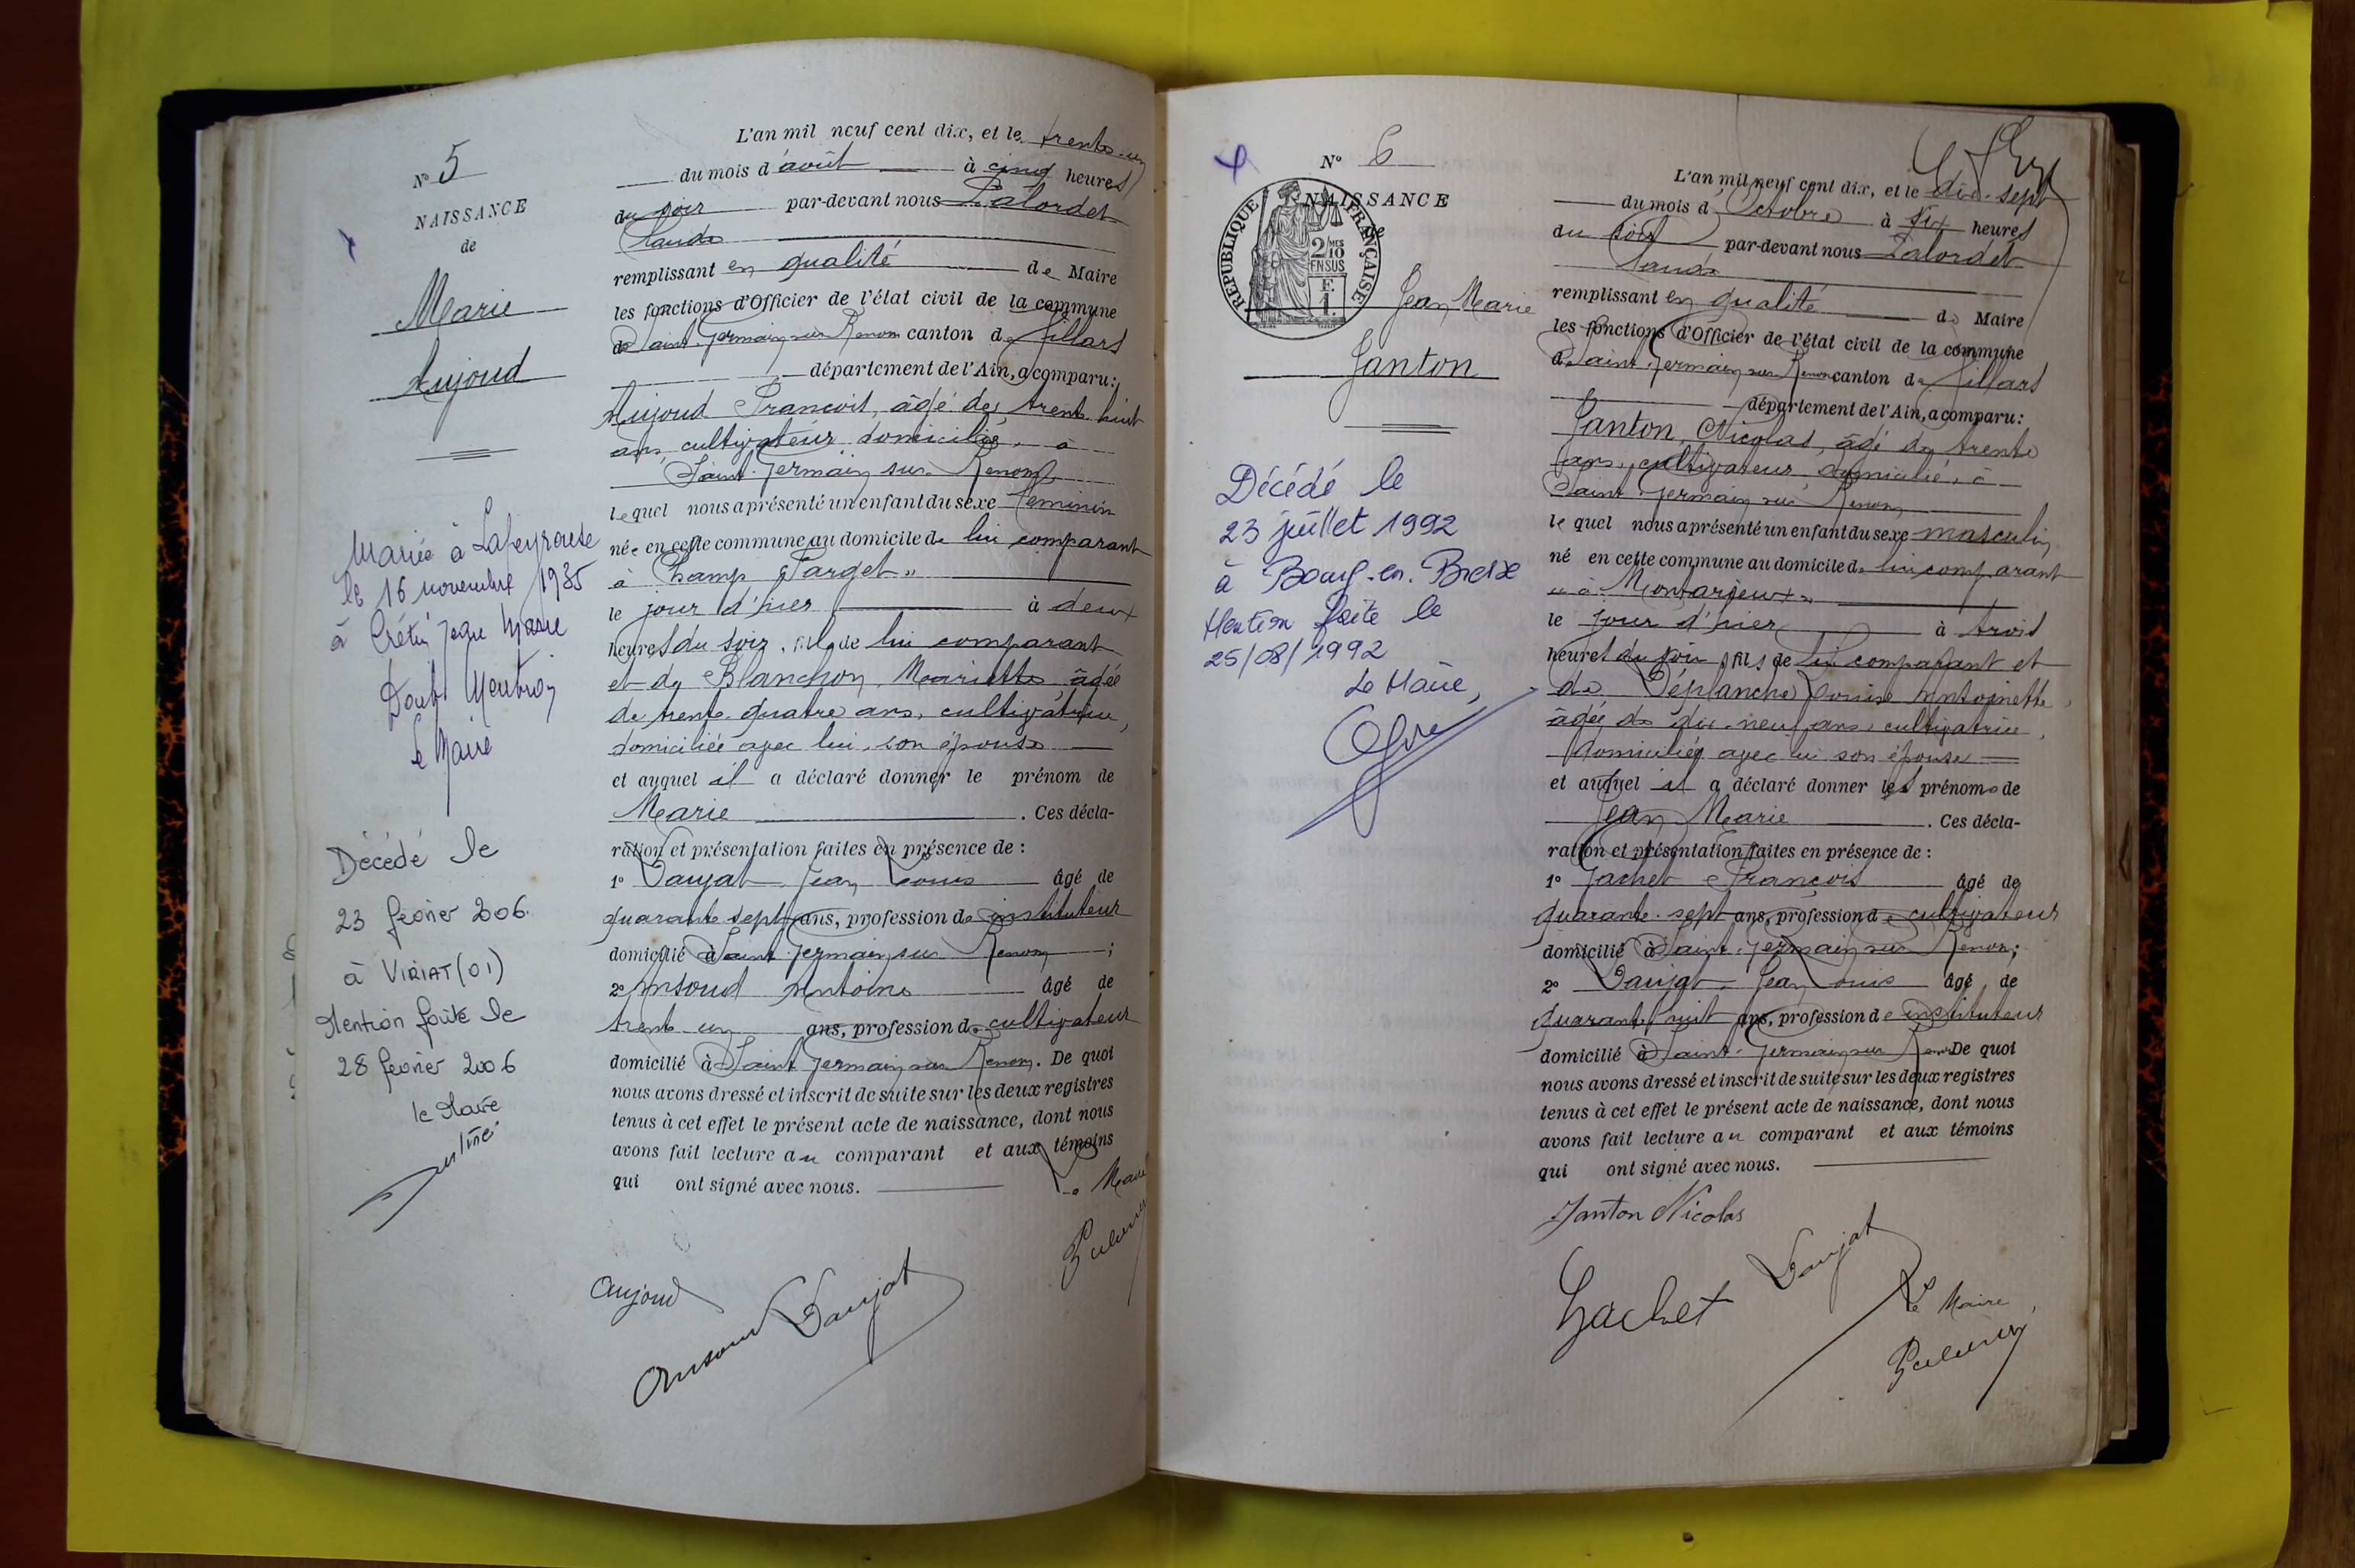 N° 5
NAISSANCE
de
Marie
Aujoud
Mariée à Lapeyrouse
le 16 novembre 1935
à Crétin Jean Marie
Dont Mention
le Maire
Décédé le
23 février 2006.
à VIRIAT (01)
Mention faite le
28 février 2006
le Maire
L'an mil neuf cent dix, et le trente-un
du mois d'août à cinq heures
du soir par-devant nous
Claude
remplissant en qualité de Maire
les fonctions d'Officier de l'état civil de la commune
de Saint-Germain sur Renom canton de Villars
département de l'Ain, a comparu:
Aujoud François, âgé de trente huit
ans, cultivateur domicilié, à
Saint-Germain sur Renom
lequel nous a présenté un enfant du sexe féminin
née en cette commune au domicile de lui comparant
à Champ Farget"
le jour d'hier à deux
heures du soir, fille de lui comparant
et de Blanchon, Mariette, âgée
de trente-quatre ans, cultivatrice,
domiciliée avec lui, son épouse
et auquel il a déclaré donner le prénom de
Marie . Ces décla-
ration et présentation faites en présence de :
1° Daujat Jean Louis âgé de
quarante sept ans, profession de instituteur
domicilié à Saint-Germain sur Renom ;
2° Ansoud Antoine âgé de
trente-un ans, profession de cultivateur
domicilié à Saint Germain sur Renom. De quoi
nous avons dressé et inscrit de suite sur les deux registres
tenus à cet effet le présent acte de naissance, dont nous
avons fait lecture au comparant et aux témoins
qui ont signé avec nous.
Le Maire
Aujoud
Ansoud Daujat
N° 6
NAISSANCE
de
RÉPUBLIQUE FRANÇAISE
2 MES
10
EN SUS
Jean Marie
Janton
Décédé le
23 juillet 1992
à Bourg-en-Bresse
Mention faite le
25/08/1992
Le Maire,
L'an mil neuf cent dix, et le dix-sept
du mois d'Octobre à six heures
du soir par-devant nous
Claude
remplissant en qualité de Maire
les fonctions d'Officier de l'état civil de la commune
de Saint-Germain sur Renom canton de Villars
département de l'Ain, a comparu:
Janton, Nicolas, âgé de trente
ans, cultivateur, domicilié, à
Saint-Germain sur Renom
lequel nous a présenté un enfant du sexe masculin
né en cette commune au domicile de lui comparant
" à Montarieux"
le jour d'hier à trois
heures du soir, fils de lui comparant et
de Déplanche Louise Antoinette,
âgée de dix-neuf ans, cultivatrice,
domiciliée avec lui son épouse
et auquel il a déclaré donner les prénoms de
Jean Marie . Ces décla-
ration et présentation faites en présence de :
1° Gachet François âgé de
quarante-sept ans, profession de cultivateur
domicilié à Saint-Germain sur Renom;
2° Daujat Jean Louis âgé de
quarante huit ans, profession de instituteur
domicilié à Saint-Germain sur Renom De quoi
nous avons dressé et inscrit de suite sur les deux registres
tenus à cet effet le présent acte de naissance, dont nous
avons fait lecture au comparant et aux témoins
qui ont signé avec nous.
Janton Nicolas
Gachet Daujat
Le Maire,